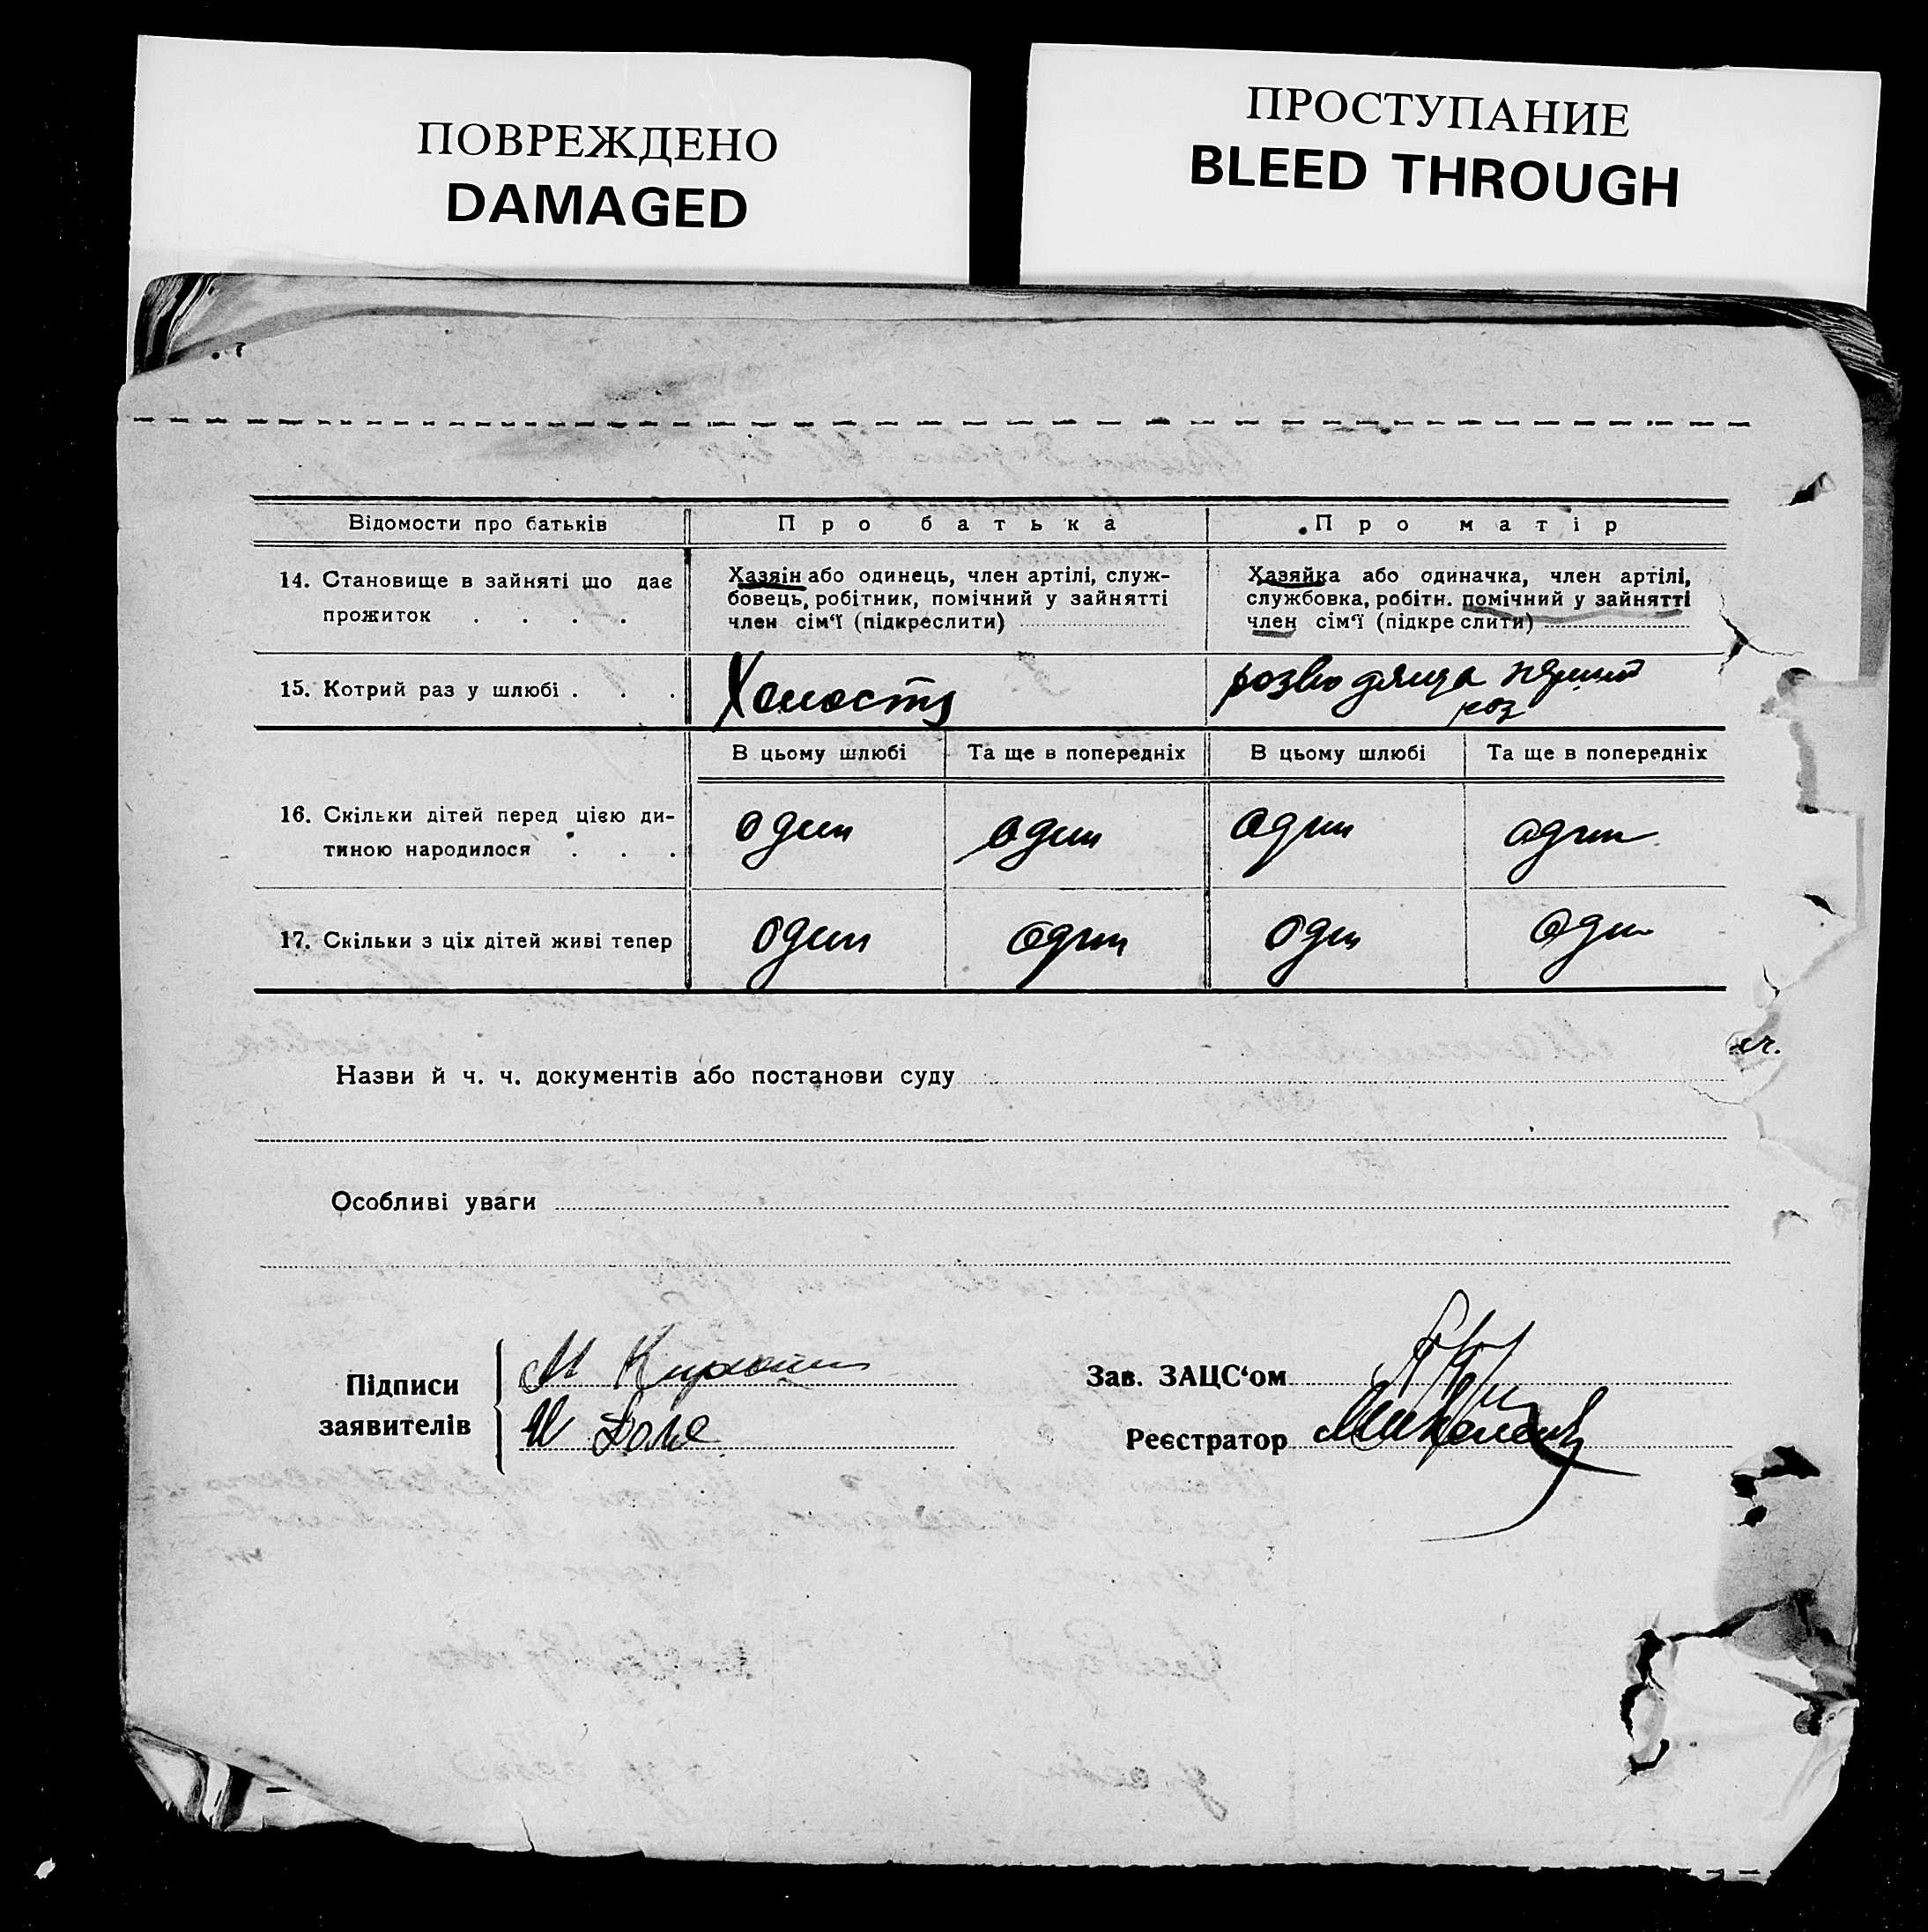 ПОВРЕЖДЕНО
DAMAGED
ПРОСТУПАНИЕ
BLEED THROUGH
Відомости про батьків
Про батька
Про матір
14. Становище в зайняті що дає
прожиток . . . .
Хазяїн або одинець, член артілі, служ-
бовець, робітник, помічний у зайнятті
член сім'ї (підкреслити)
Хазяйка або одиначка, член артілі,
службовка, робітн. помічний у зайнятті
член сім'ї (підкреслити)
15. Котрий раз у шлюбі . . .
Холостъ
розводяща перший
раз
В цьому шлюбі
Та ще в попередніх
В цьому шлюбі
Та ще в попередніх
16. Скільки дітей перед цією ди-
тиною народилося . . .
один
один
один
один
17. Скільки з ціх дітей живі тепер
один
один
один
один
Назви й ч. ч. документів або постанови суду
Особливі уваги
Підписи
заявителів
М
Зав. ЗАЦС'ом
Реєстратор